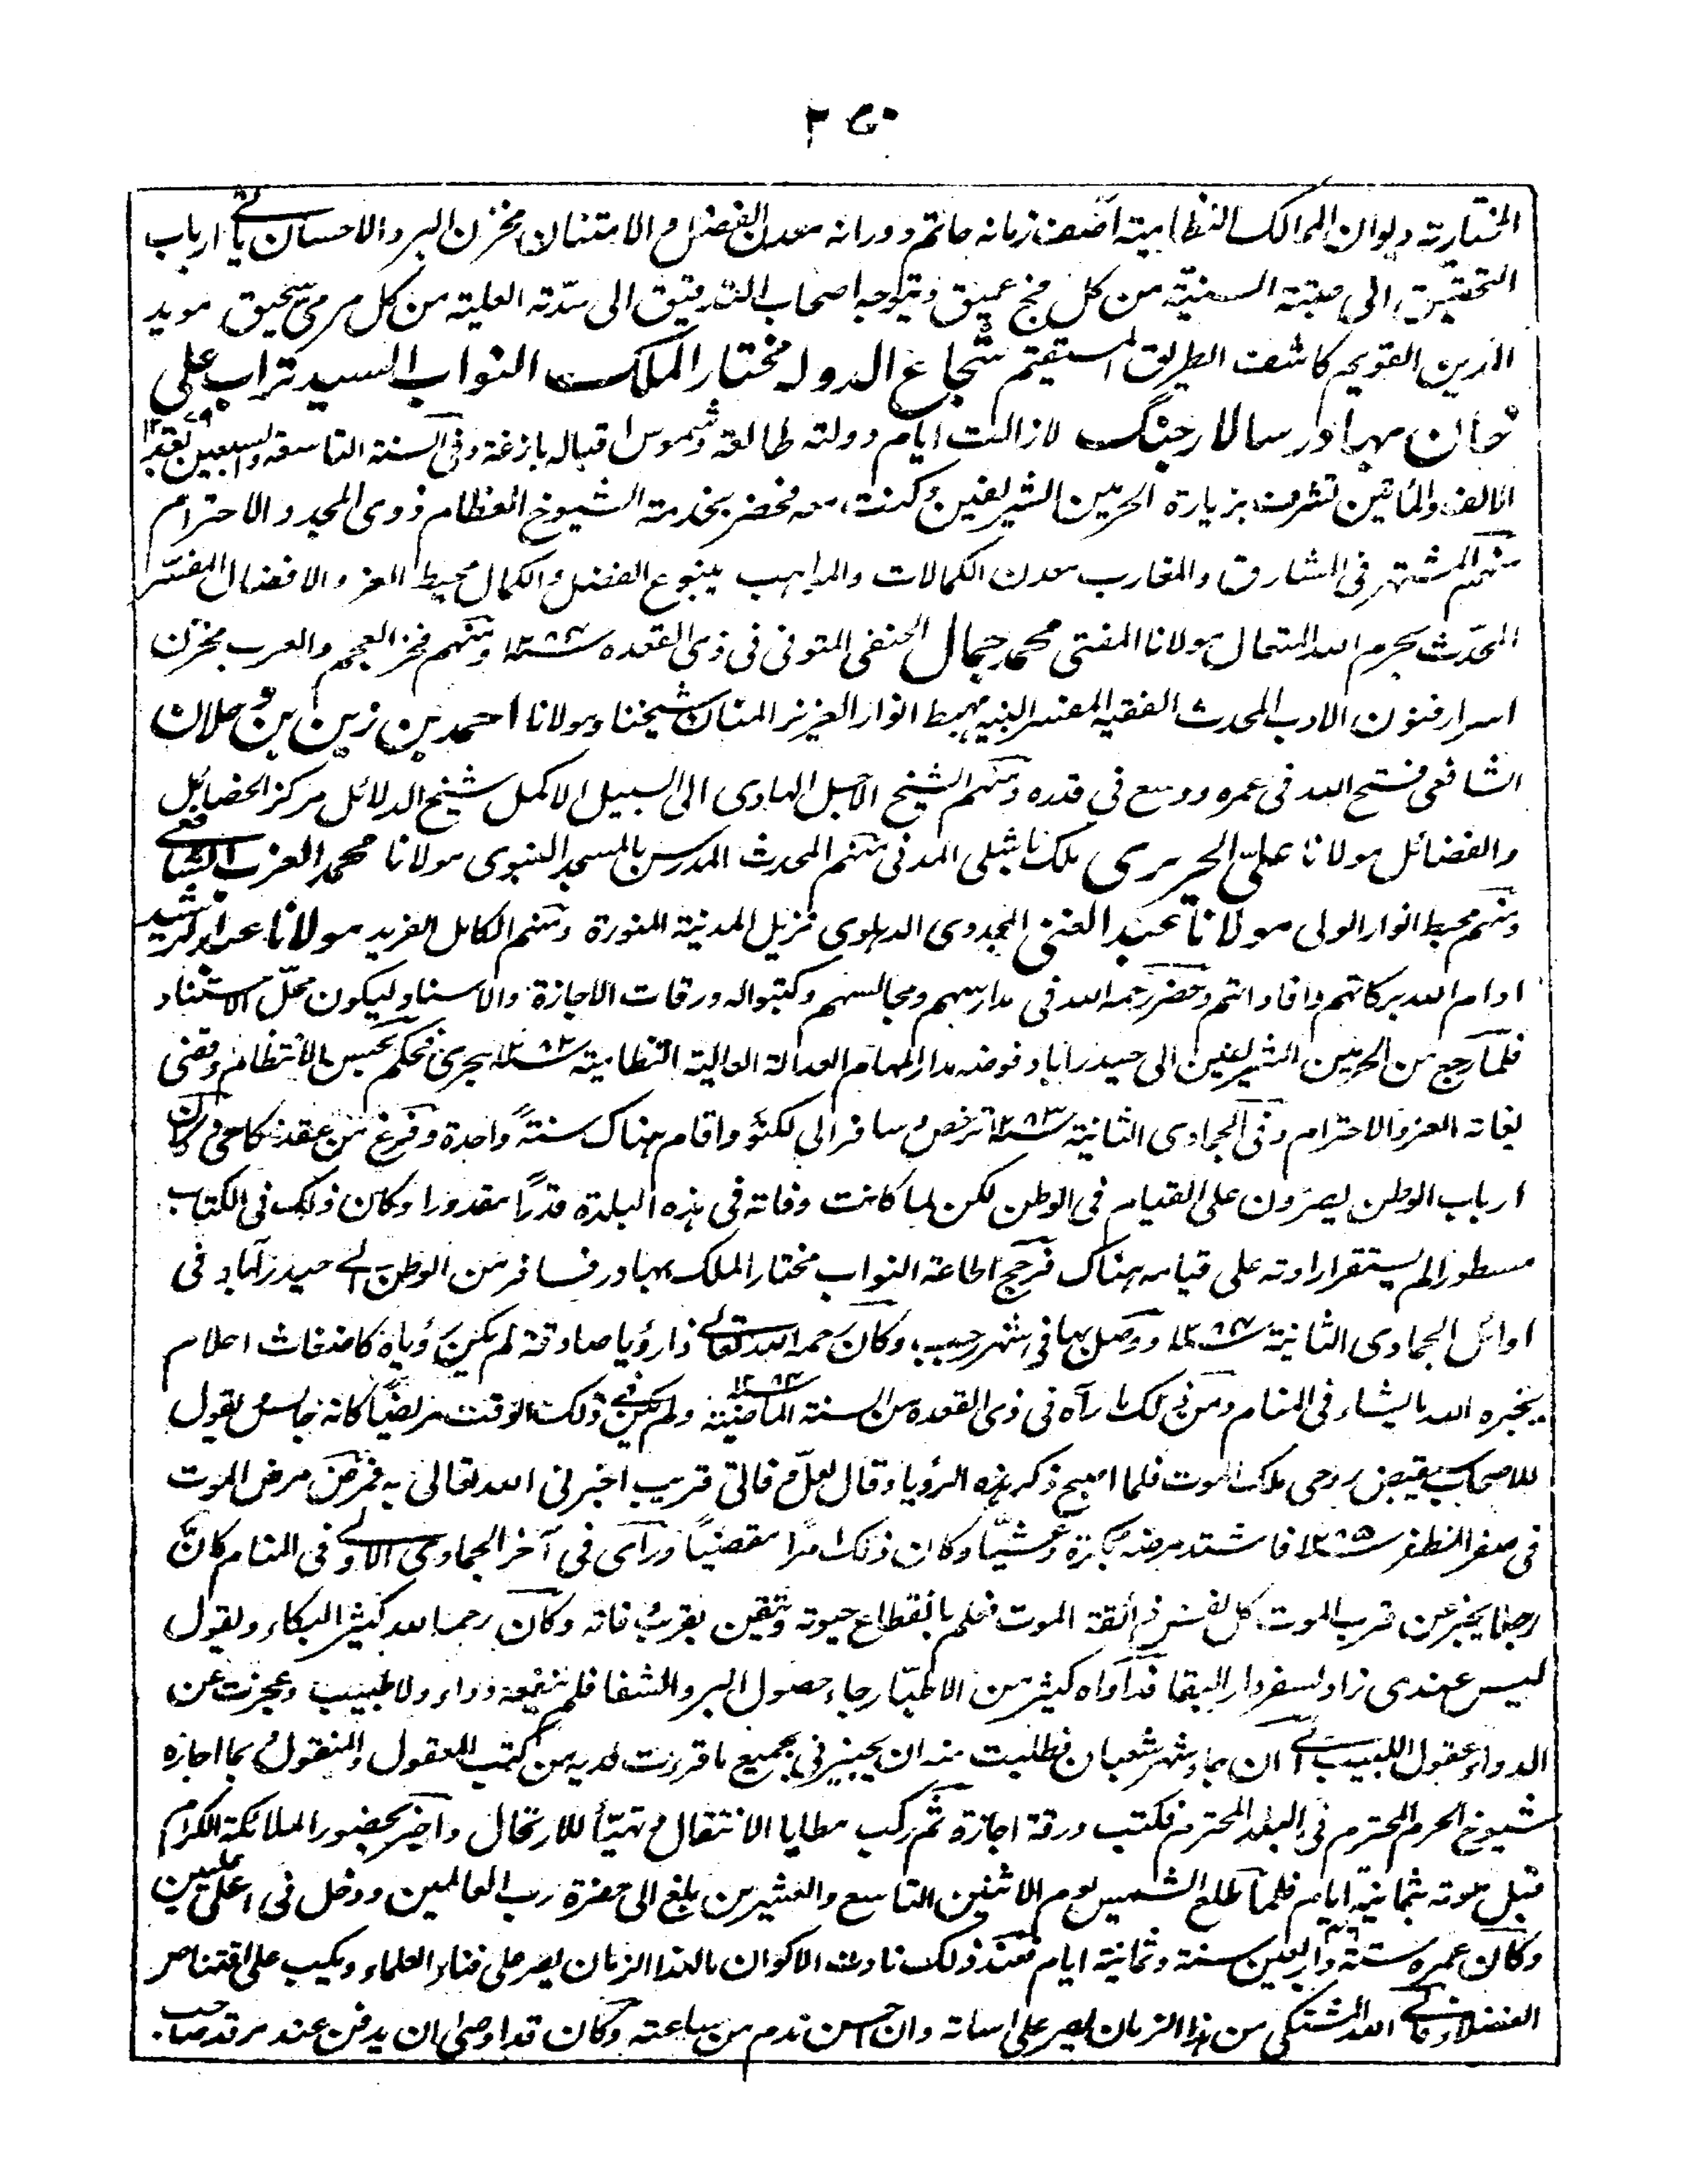 ٢٥٠
المختارية ديوان الممالك النظامية آصف زمانه حاتم دورانه معدن الفضل والامتنان مخزن البر والاحسان ياتى ارباب
التحقيق الى عتبته السنية من كل فج عميق ويتوجه اصحاب التدقيق الى سدته العلية من كل مرمى سحيق مويد
الدين القويم كاشف الطريق المستقيم شجاع الدوله مختار الملك النواب السيد تراب على
خان بهادر سالار جنگ لازالت ايام دولته طالعة وشموس اقباله بازغة وفى السنة التاسعة والسبعين بعد
الالف والمأتين تشرف بزيارة الحرمين الشريفين وكنت معه فحضر بخدمة الشيوخ العظام ذوى المجد والاحترام
منهم المشتهر فى المشارق والمغارب معدن الكمالات والمواهب ينبوع الفضل والكمال محيط العز والافضال المفسر
المحدث بحرم الله المتعال مولانا المفتى محمد جمال الحنفى المتوفى فى ذى القعده سنة ١٢٨٤ ومنهم فخر العجم والعرب مخزن
اسرار فنون الادب المحدث الفقيه المفسر النبيه مهبط انوار العزيز المنان شيخنا ومولانا احمد بن زين بن دحلان
الشافعى فسح الله فى عمره ووسع فى قدره ومنهم الشيخ الاجل الهادى الى السبيل الاكمل شيخ الدلائل مركز الخصائل
والفضائل مولانا على الحريرى ملك باشلى المدنى منهم المحدث المدرس بالمسجد النبوى مولانا محمد العزب الشافعى
ومنهم محيط انوار الولى مولانا عبد الغنى المجددى الدهلوى نزيل المدينة المنورة ومنهم الكامل الفريد مولانا عبد الرشيد
ادام الله بركاتهم وافاداتهم وحضر رحمه الله فى مدارسهم ومجالسهم وكتبوا له ورقات الاجازة والاسناد ليكون محل الاستناد
فلما رجع من الحرمين الشريفين الى حيدرآباد فوضه مدار المهام العدالة العالية النظامية سنة ١٢٨٢ هجرى فحكم بحسن الانتظام وقضى
بغاية العز والاحترام وفى الجمادى الثانية سنة ١٢٨٣ ترخص وسافر الى لكنؤ واقام هناك سنة واحدة وفرغ من عقد نكاحى وكان
ارباب الوطن يصرون على القيام فى الوطن لكن لما كانت وفاته فى هذه البلدة قدرا مقدورا وكان ذلك فى الكتاب
مسطورا لم يستقر ارادته على قيامه هناك فرجح اطاعة النواب مختار الملك بهادر فسافر من الوطن الى حيدرآباد فى
اوائل الجمادى الثانية سنة ١٢٨٤ ووصل بها فى شهر رجب وكان رحمه الله تعالى ذا رؤيا صادقة لم يكن رؤياه كاضغاث احلام
يخبره الله بما يشاء فى المنام ومن ذلك ما رآه فى ذى القعدة من السنة الماضية ١٢٨٤ ولم يكن فى ذلك الوقت مريضا كانه جالس يقول
للاصحاب سيقبض روحى ملك الموت فلما اصبح ذكر هذه الرؤيا وقال لعل وفاتى قريب اخبرنى الله تعالى به فمرض مرض الموت
فى صفر المظفر سنة ١٢٨٥ فاشتد مرضه بكرة وعشيا وكان ذلك امرا مقضيا ورأى فى آخر الجمادى الاولى فى المنام كان
رجلا يخبر عن قرب الموت كل نفس ذائقة الموت فعلم بانقطاع حيوته وتيقن بقرب وفاته وكان رحمه الله كثير البكاء ويقول
ليس عندى زاد لسفر دار البقا قد داواه كثير من الاطباء رجاء حصول البر والشفا فلم ينفعه دواء ولا طبيب وعجزت عن
الدواء عقول اللبيب الى ان جاء شهر شعبان فطلبت منه ان يجيزنى بجميع ما قرءت لديه من كتب المعقول والمنقول وبما اجازه
شيوخ الحرم المحترم فى البلد المحترم فكتب ورقة اجازة ثم ركب مطايا الانتقال وتهيأ للارتحال واخبر بحضور الملائكة الكرام
قبل موته بثمانية ايام فلما طلع الشمس يوم الاثنين التاسع والعشرين بلغ الى حضرة رب العالمين ودخل فى اعلى عليين
وكان عمره ستة واربعين سنة وثمانية ايام فعند ذلك نادته الاكوان ما لهذا الزمان يصر على فناء العلماء ويكب على اقتناص
الفضلاء والى الله المشتكى من هذا الزمان يصر على اساته وان احسن ندم من ساعته وكان قد اوصى ان يدفن عند مرقد صاحب